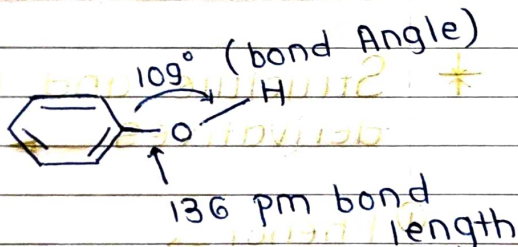 109° (bond Angle)
H
O
136 pm bond
length